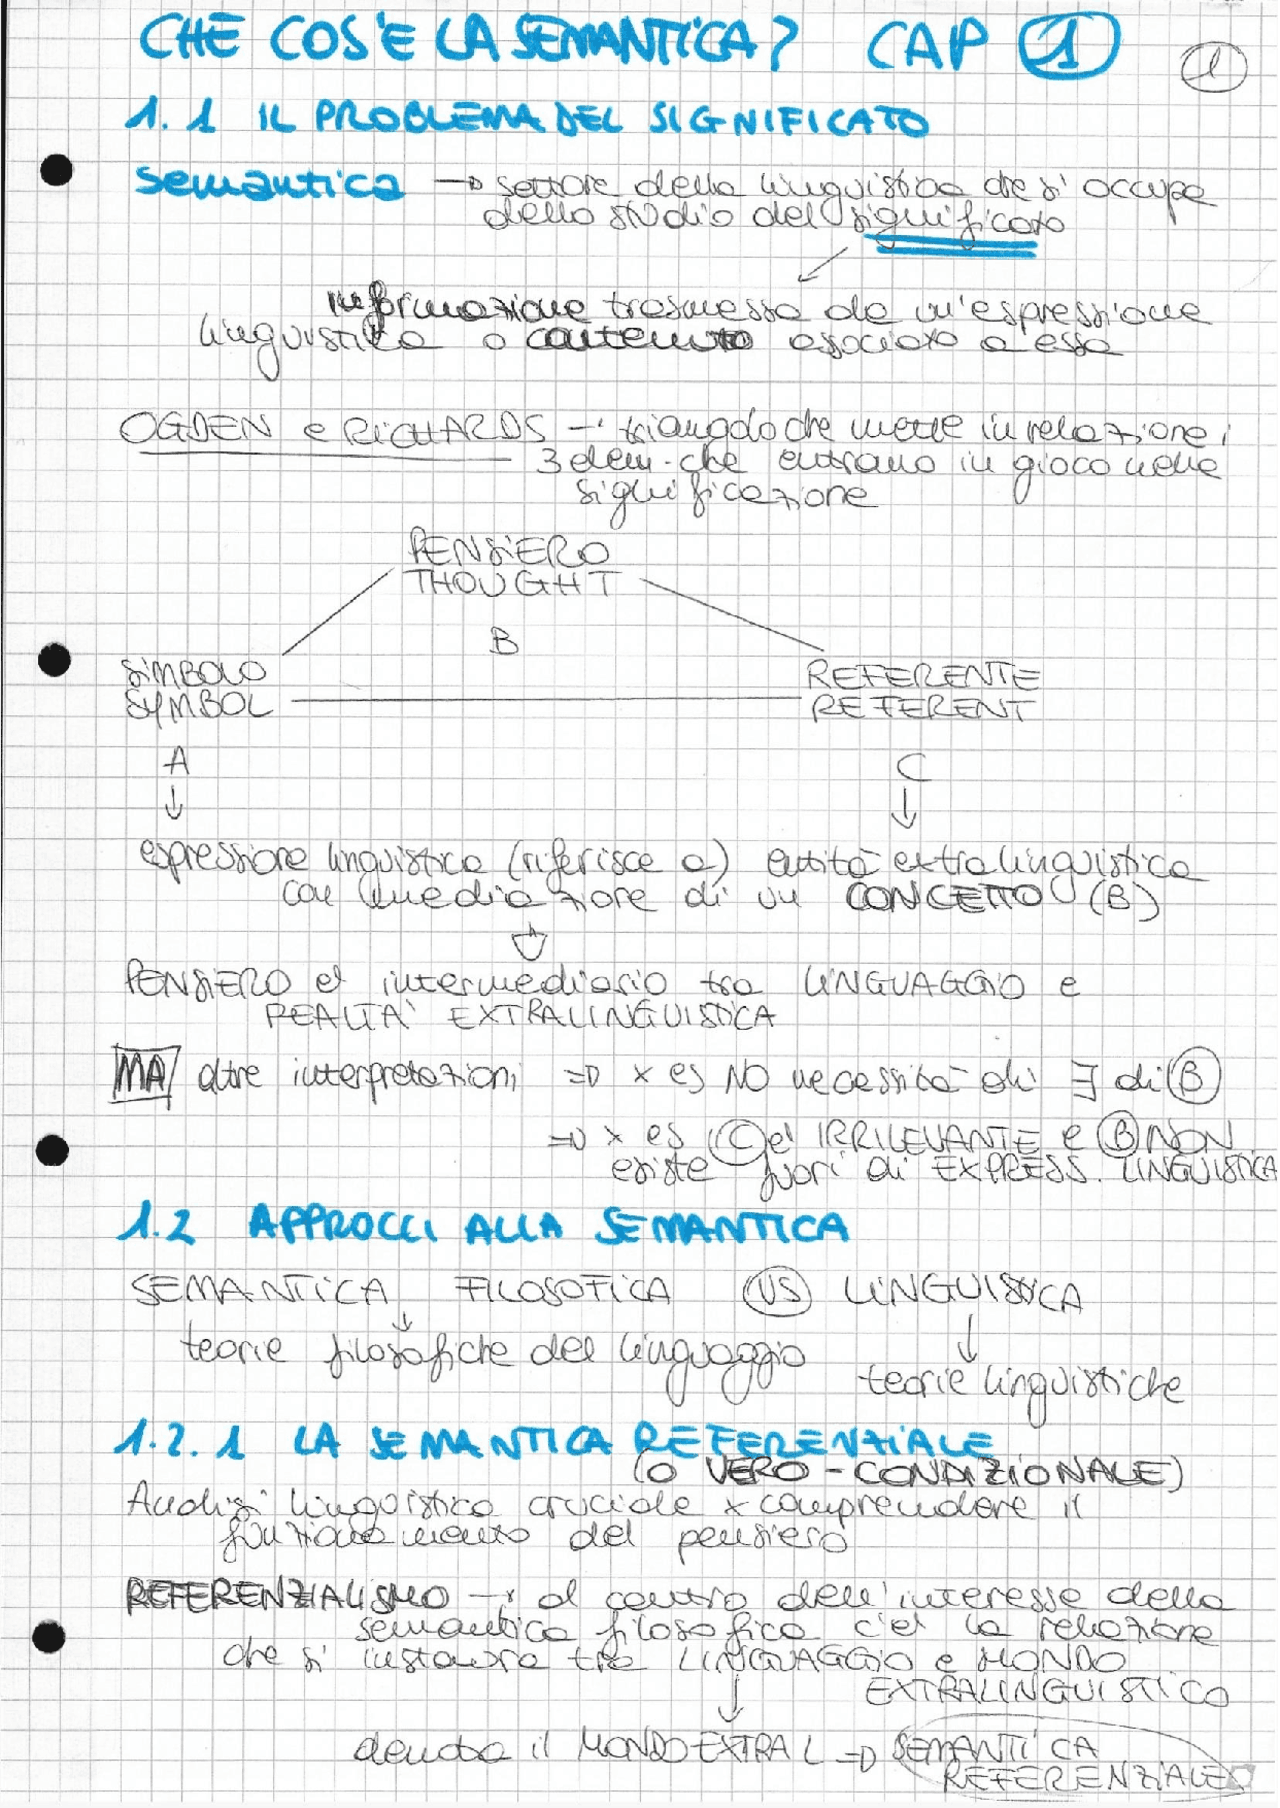 CHE COS'È LA SEMANTICA? CAP 1
1
1.1 IL PROBLEMA DEL SIGNIFICATO
semantica → settore della linguistica che si occupa
dello studio del significato
informazione trasmessa da un'espressione
linguistica o contenuto associato a essa
OGDEN e RICHARDS → triangolo che mette in relazione i
3 elem. che entrano in gioco nella
significazione
PENSIERO
THOUGHT
B
SIMBOLO
SYMBOL
REFERENTE
REFERENT
A
C
↓
↓
espressione linguistica (riferisce a) entità extralinguistica
con mediazione di un CONCETTO (B)
PENSIERO è intermediario tra LINGUAGGIO e
REALTÀ EXTRALINGUISTICA
MA altre interpretazioni ⇒ x es NO necessità di ∃ di B
⇒ x es C è IRRILEVANTE e B NON
esiste fuori di EXPRESS. LINGUISTICA
1.2 APPROCCI ALLA SEMANTICA
SEMANTICA FILOSOFICA VS LINGUISTICA
↓
teorie filosofiche del linguaggio
↓
teorie linguistiche
1.2.1 LA SEMANTICA REFERENZIALE
(O VERO-CONDIZIONALE)
Analisi linguistica cruciale x comprendere il
funzionamento del pensiero
REFERENZIALISMO → al centro dell'interesse della
semantica filosofica c'è la relazione
che si instaura tra LINGUAGGIO e MONDO
EXTRALINGUISTICO
↓
denota il MONDO EXTRA L ⇒ SEMANTICA
REFERENZIALE